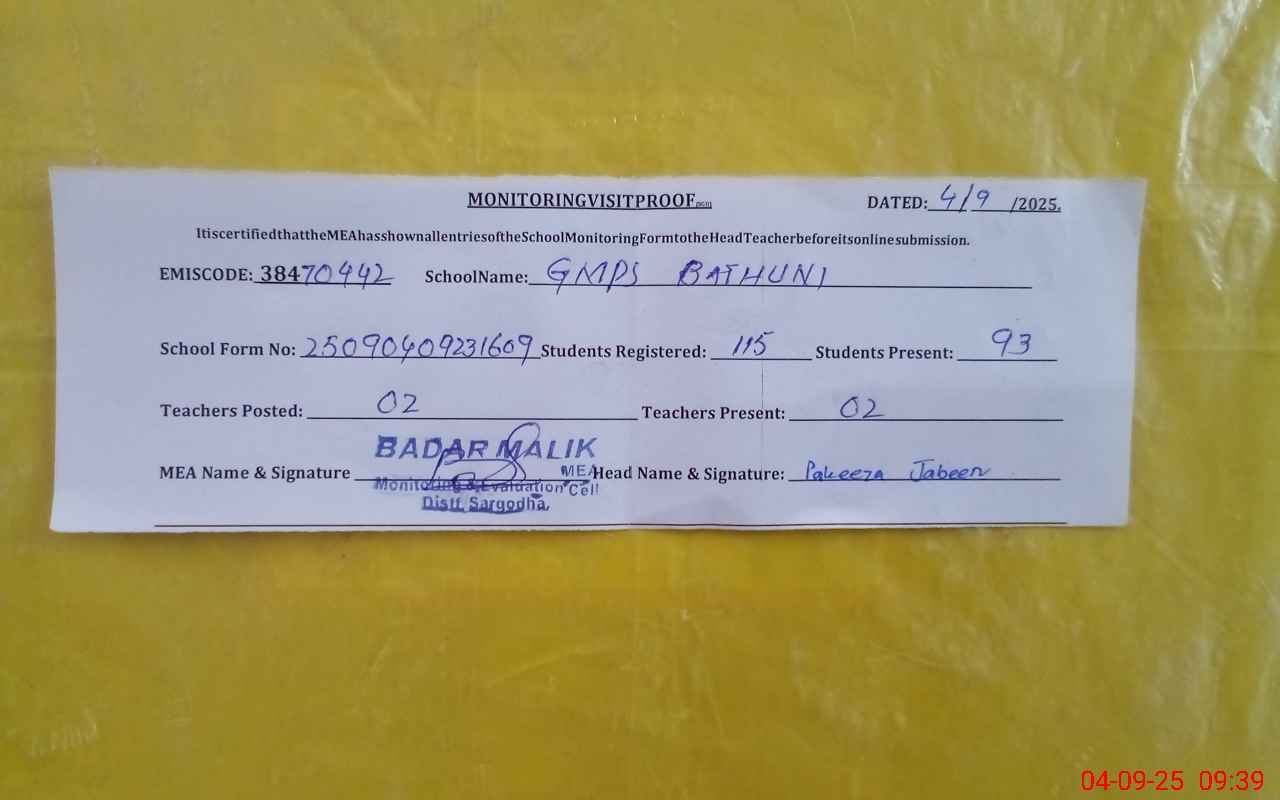 MONITORINGVISITPROOF DATED: 4/9 /2025.
ItiscertifiedthattheMEAhasshownallentriesoftheSchoolMonitoringFormtotheHeadTeacherbeforeitsonlinesubmission.
EMISCODE: 38470442 SchoolName: GMPS BATHUNI
School Form No: 25090409231609 Students Registered: 115 Students Present: 93
Teachers Posted: 02 Teachers Present: 02
BADAR MALIK
MEA Name & Signature MEA Head Name & Signature: Pakeeza Jabeen
Monitoring & Evaluation Cell
Distt. Sargodha.
04-09-25 09:39